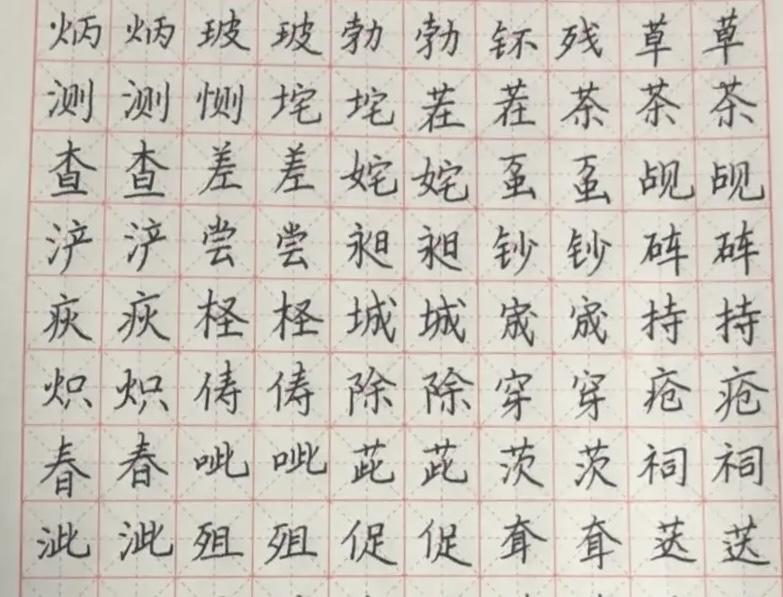 炳炳玻玻勃勃钚残草草
测测恻垞垞茬茬茶茶茶
查查差差姹姹虿虿觇觇
浐浐尝尝昶昶钞钞砗砗
疢疢柽柽城城宬宬持持
炽炽俦俦除除穿穿疮疮
春春呲呲茈茈茨茨祠祠
泚泚殂殂促促耷耷荙荙